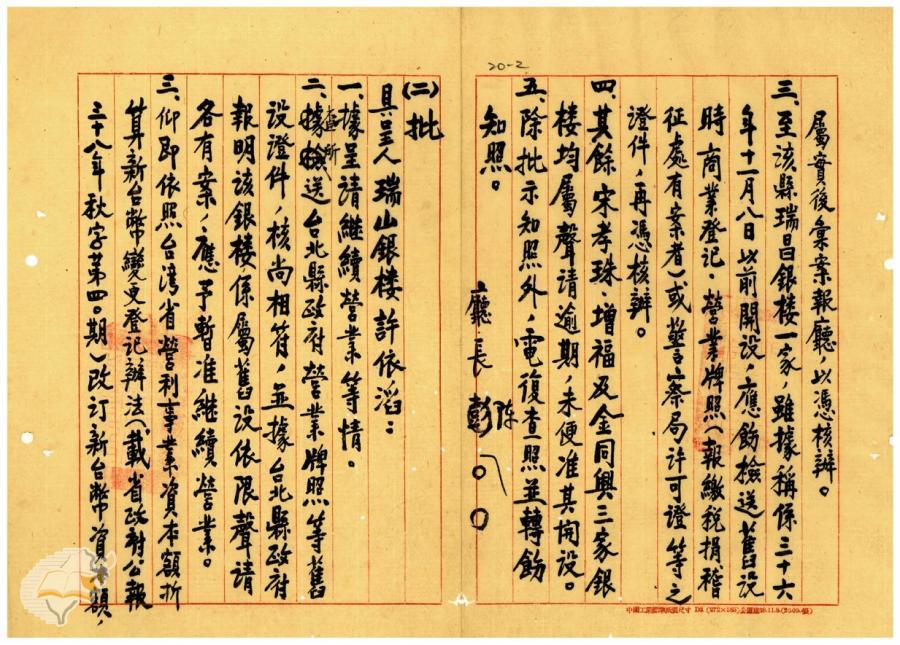 20-2
屬實後彙案報廳，以憑核辦。
三、至該縣瑞昌銀楼一家，雖據稱係三十六
年十一月八日以前開設，應飭檢送舊設
時商業登記、營業牌照（報繳稅捐稽
征處有案者）或警察局許可證等之
證件，再憑核辦。
四、其餘宋孝珠、增福及金同興三家銀
楼均屬聲請逾期，未便准其開設。
五、除批示知照外，電復查照並轉飭
知照。
廳長 彭〇〇
陈
(二)批
具呈人 瑞山銀楼 許依滔：
一、據呈請継續營業等情。
二、據檢送台北縣政府營業牌照等舊
查所
設證件，核尚相符，並據台北縣政府
報明該銀楼係屬舊設依限聲請
各有案，應予暫准継續營業。
三、仰即依照台湾省營利事業資本額折
算新台幣變更登記辦法（載省政府公報
三十八年秋字第四〇期）改訂新台幣資本額，